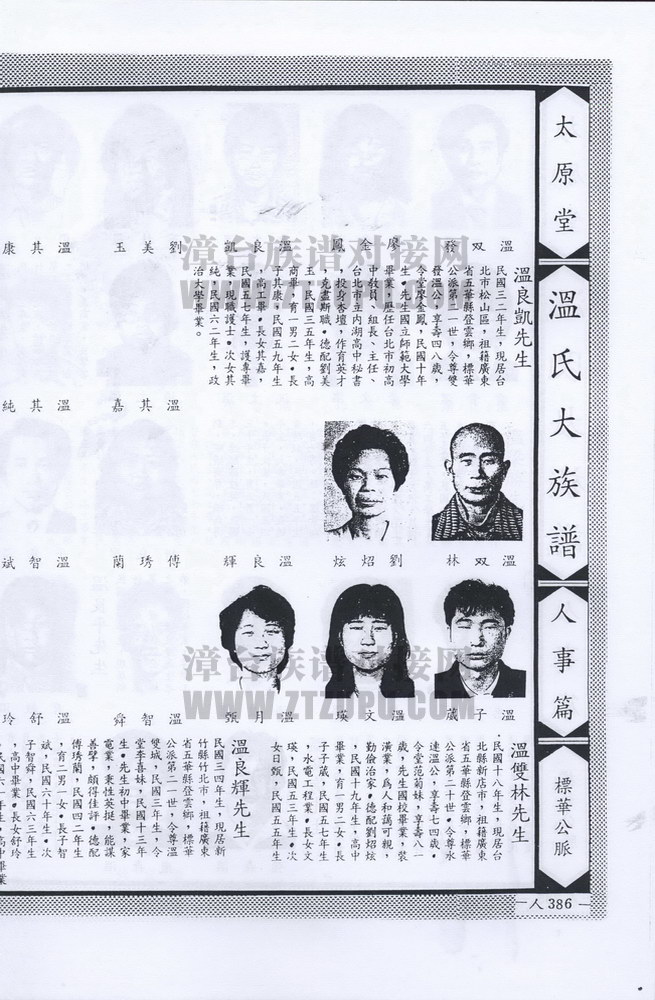 太原堂
溫氏大族譜
人事篇
標華公脈
人 386
溫双發
廖金鳳
溫良凱
劉美玉
溫其康
溫良凱先生
民國三二年生，現居台
北市松山區，祖籍廣東
省五華縣登雲鄉，標華
公派第二一世，令尊雙
發溫公，享壽四八歲，
令堂廖金鳳，民國十年
生。先生國立師範大學
畢業，歷任台北市初高
中教員、組長、主任、
台北市立內湖高中秘書
，投身杏壇，作育英才
，克盡斯職。德配劉美
玉，民國三五年生，高
商畢，育一男二女。長
子其康，民國五九年生
，高工畢。長女其嘉，
民國五七年生，護專畢
業，現職護士。次女其
純，民國六二年生，政
治大學畢業。
溫其嘉
溫其純
溫双林
劉炤炫
溫良輝
傅琇蘭
溫智斌
溫子葳
溫文瑛
溫月甄
溫智舜
溫舒玲
溫雙林先生
民國十八年生，現居台
北縣新店市，祖籍廣東
省五華縣登雲鄉，標華
公派第二十世。令尊永
速溫公，享壽七四歲。
令堂范菊妹，享壽八一
歲，先生國校畢業，裝
潢業，爲人和藹可親，
勤儉治家。德配劉炤炫
，民國十九年生，高中
畢業，育一男二女。長
子子葳，民國五七年生
，水電工程業。長女文
瑛，民國五三年生。次
女日甄，民國五五年生
溫良輝先生
民國三四年生，現居新
竹縣竹北市，祖籍廣東
省五華縣登雲鄉，標華
公派第二一世，令尊溫
雙城，民國三年生，令
堂李喜妹，民國十三年
生。先生初中畢業，家
電業，秉性英挺，能謀
善擘，頗得佳評。德配
傅琇蘭，民國四二年生
，育二男一女。長子智
斌，民國六十年生。次
子智舜，民國六三年生
，高中畢業。長女舒玲
漳台族谱对接网
WWW.ZTZUPU.COM
漳台族谱对接网
WWW.ZTZUPU.COM